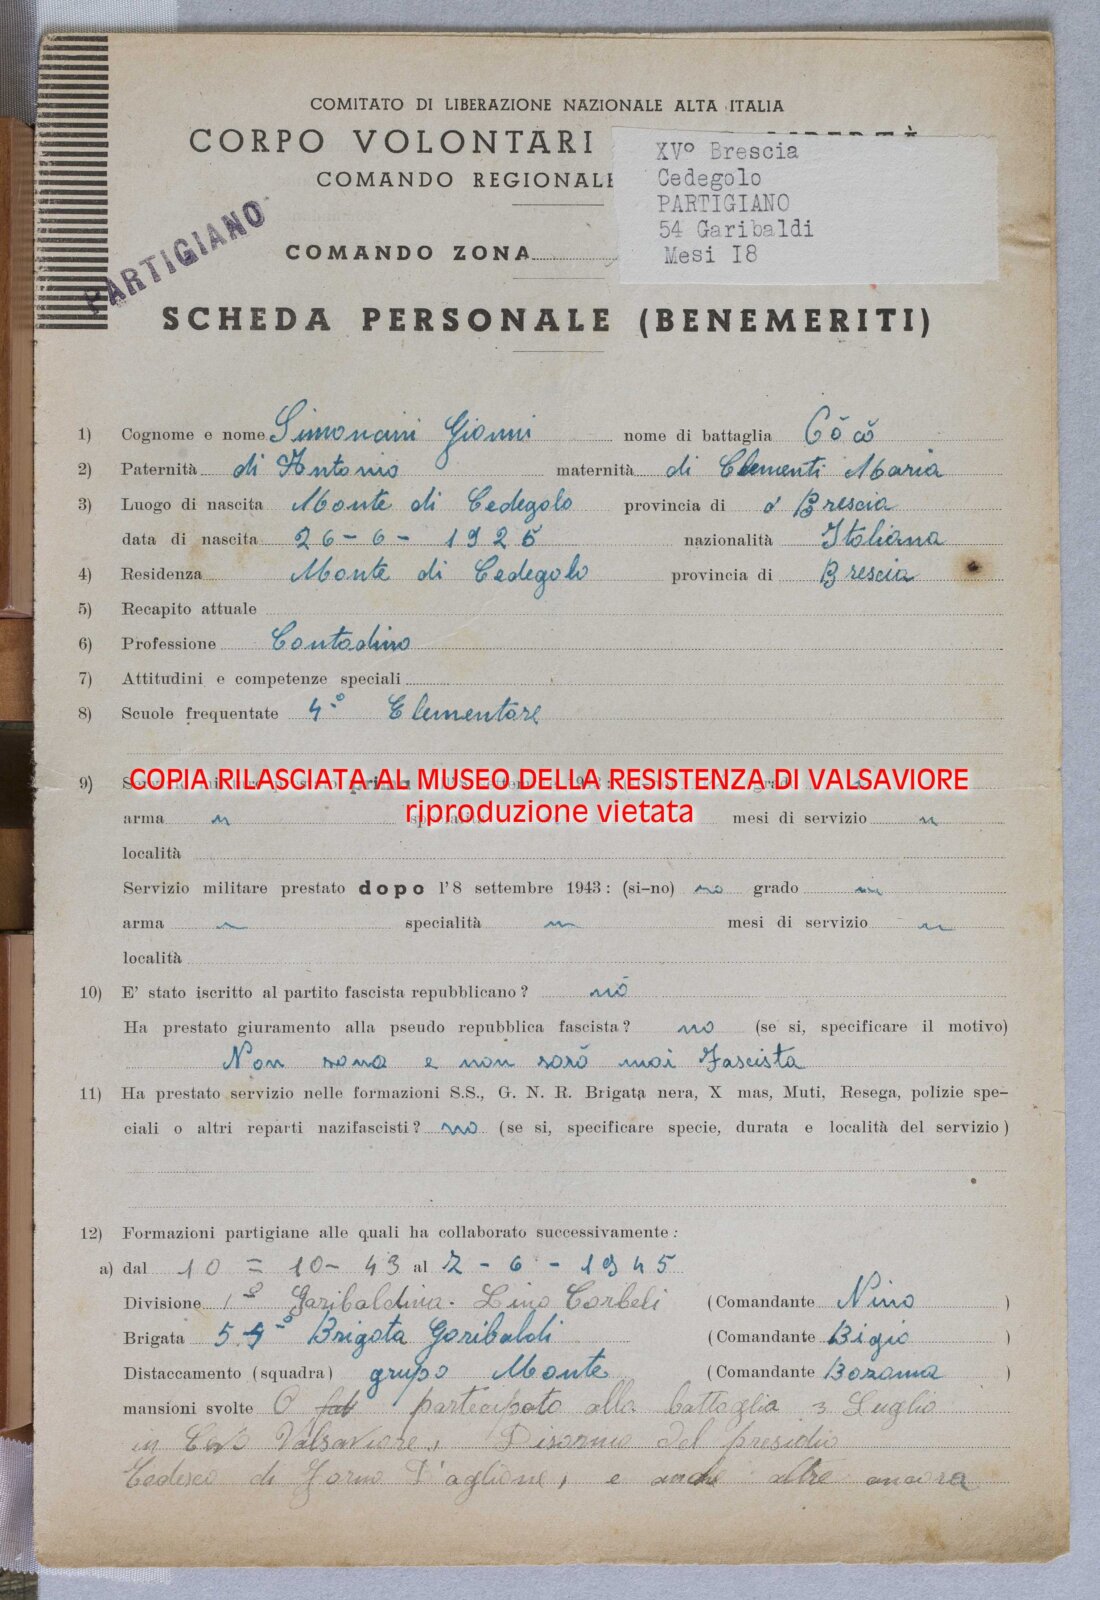 COMITATO DI LIBERAZIONE NAZIONALE ALTA ITALIA
CORPO VOLONTARI LIBERTÀ
COMANDO REGIONALE
XVº Brescia
Cedegolo
PARTIGIANO
54 Garibaldi
Mesi I8
PARTIGIANO
COMANDO ZONA
SCHEDA PERSONALE (BENEMERITI)
1) Cognome e nome Simoncini Gionni nome di battaglia Cŏcŏ
2) Paternità di Antonio maternità di Clementi Maria
3) Luogo di nascita Monte di Cedegolo provincia di d' Brescia
data di nascita 26-6-1925 nazionalità Italiana
4) Residenza Monte di Cedegolo provincia di Brescia
5) Recapito attuale
6) Professione Contadino
7) Attitudini e competenze speciali
8) Scuole frequentate 4º Elementare
9)
COPIA RILASCIATA AL MUSEO DELLA RESISTENZA DI VALSAVIORE
riproduzione vietata
arma specialità mesi di servizio
località
Servizio militare prestato dopo l'8 settembre 1943: (si-no) no grado
arma specialità mesi di servizio
località
10) E' stato iscritto al partito fascista repubblicano? nŏ
Ha prestato giuramento alla pseudo repubblica fascista? no (se si, specificare il motivo)
Non sono e non sarŏ mai Fascista
11) Ha prestato servizio nelle formazioni S.S., G. N. R. Brigata nera, X mas, Muti, Resega, polizie spe-
ciali o altri reparti nazifascisti? no (se si, specificare specie, durata e località del servizio)
12) Formazioni partigiane alle quali ha collaborato successivamente:
a) dal 10 = 10-43 al 2-6-1945
Divisione 1º Garibaldina. Lino Corbeli (Comandante Nino )
Brigata 54º Brigata Garibaldi (Comandante Bigio )
Distaccamento (squadra) grupo Monte (Comandante Bozama )
mansioni svolte O partecipato alla battaglia 3 Luglio
in Valsaviore, Disarmo del presidio
Tedesco di Forno D'aglione, e anche altre ancora